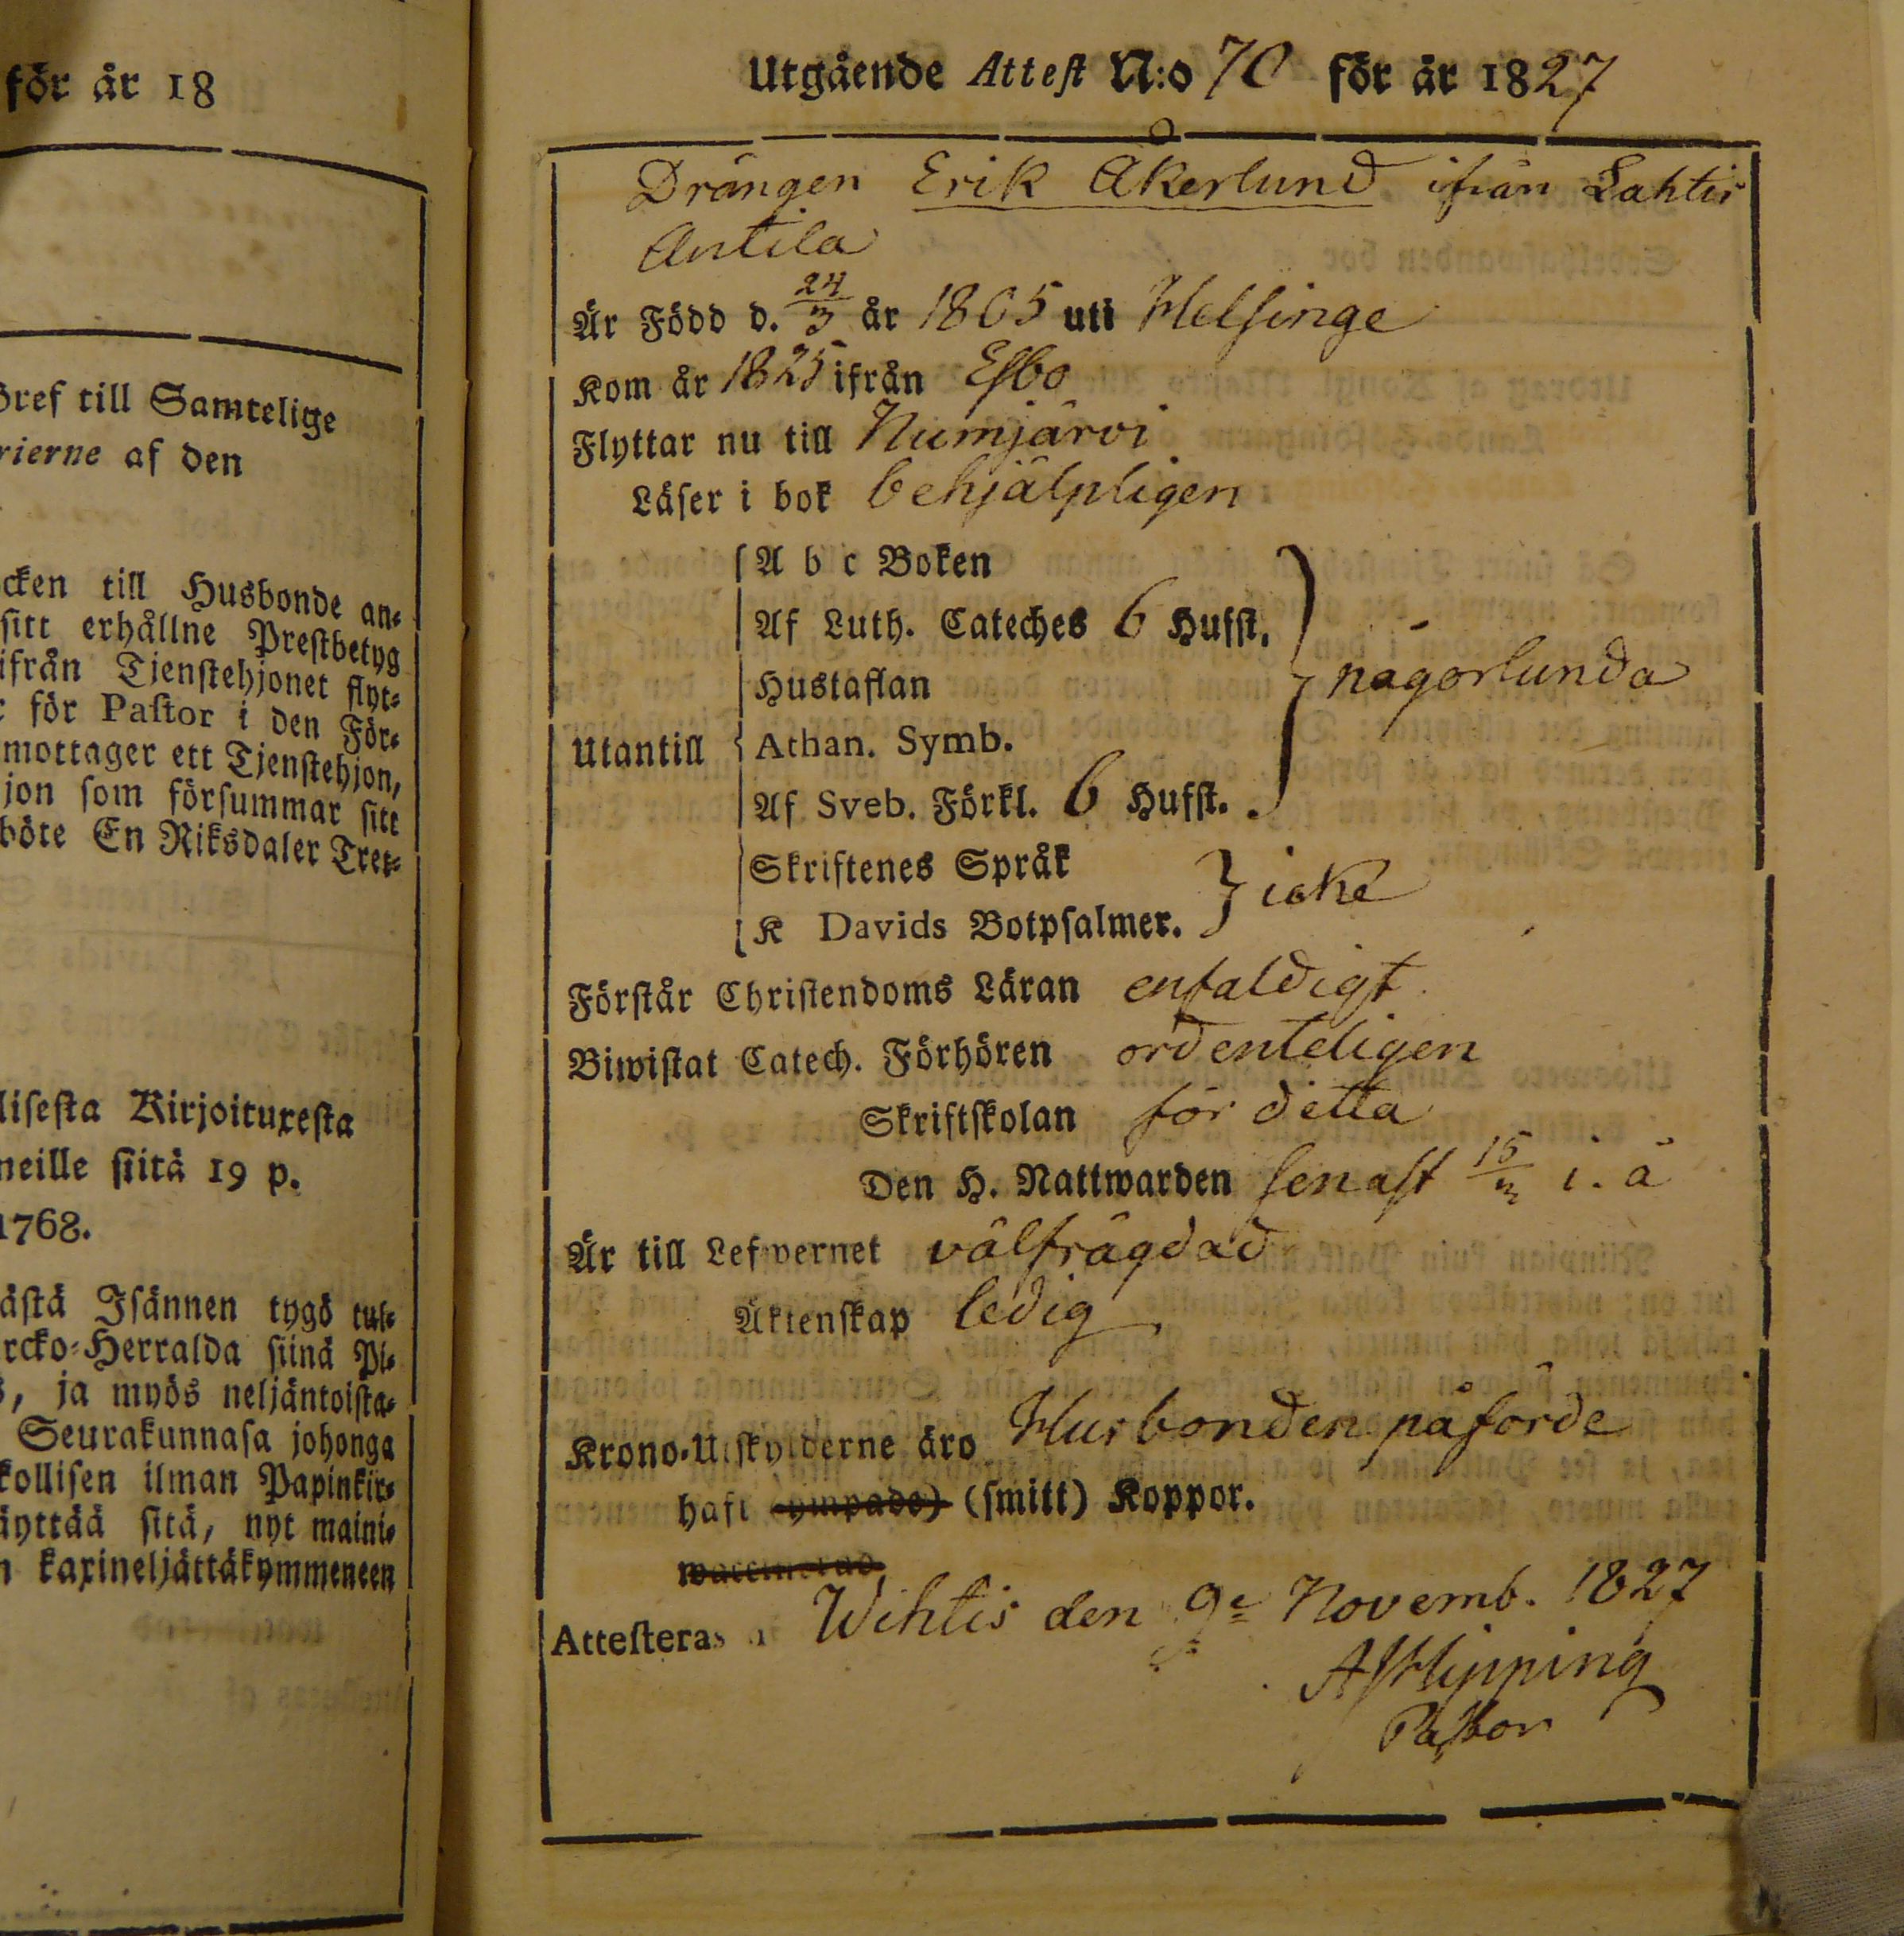 för år 18
Bref till Samtelige
rierne af den
cken till Husbonde an-
sitt erhållne Prestbetyg
ifrån Tjenstehjonet flyt-
för Pastor i den För-
mottager ett Tjenstehjon,
jon som försummar sitt
böte En Riksdaler Tret-
lisesta Kirjoituxesta
neille siitä 19 p.
1768.
ästä Isännen tygö tul-
rcko-Herralda siinä Pi-
, ja myös neljäntoista-
Seurakunnasa johonga
kollisen ilman Papinkir-
äyttää sitä, nyt maini-
n kaxineljättäkymmeneen
Utgående Attest N:o 70 för år 1827
Drängen Erik Åkerlund ifrån Lahtis
Antila
Är Född d. 24/3 år 1805 uti Helsinge
Kom år 1825 ifrån Esbo
Flyttar nu till Numjärvi
Läser i bok behjälpligen
A b c Boken
Af Luth. Cateches 6 Hufst.
Hustaflan någorlunda
Utantill Athan. Symb.
Af Sveb. Förkl. 6 Hufst.
Skriftenes Språk
icke
K Davids Botpsalmer.
Förstår Christendoms Läran enfaldigt
Biwistat Catech. Förhören ordenteligen
Skriftskolan för detta
Den H. Nattwarden senast 15/ i. å
Är till Lefwernet välfrägdad
Äktenskap ledig
Krono-Utskylderne äro Husbonden påförde
haft (ympade) (smitt) Koppor.
waccinerad
Attesteras Wihtis den 9e Novemb. 1827
Hipping
Pastor